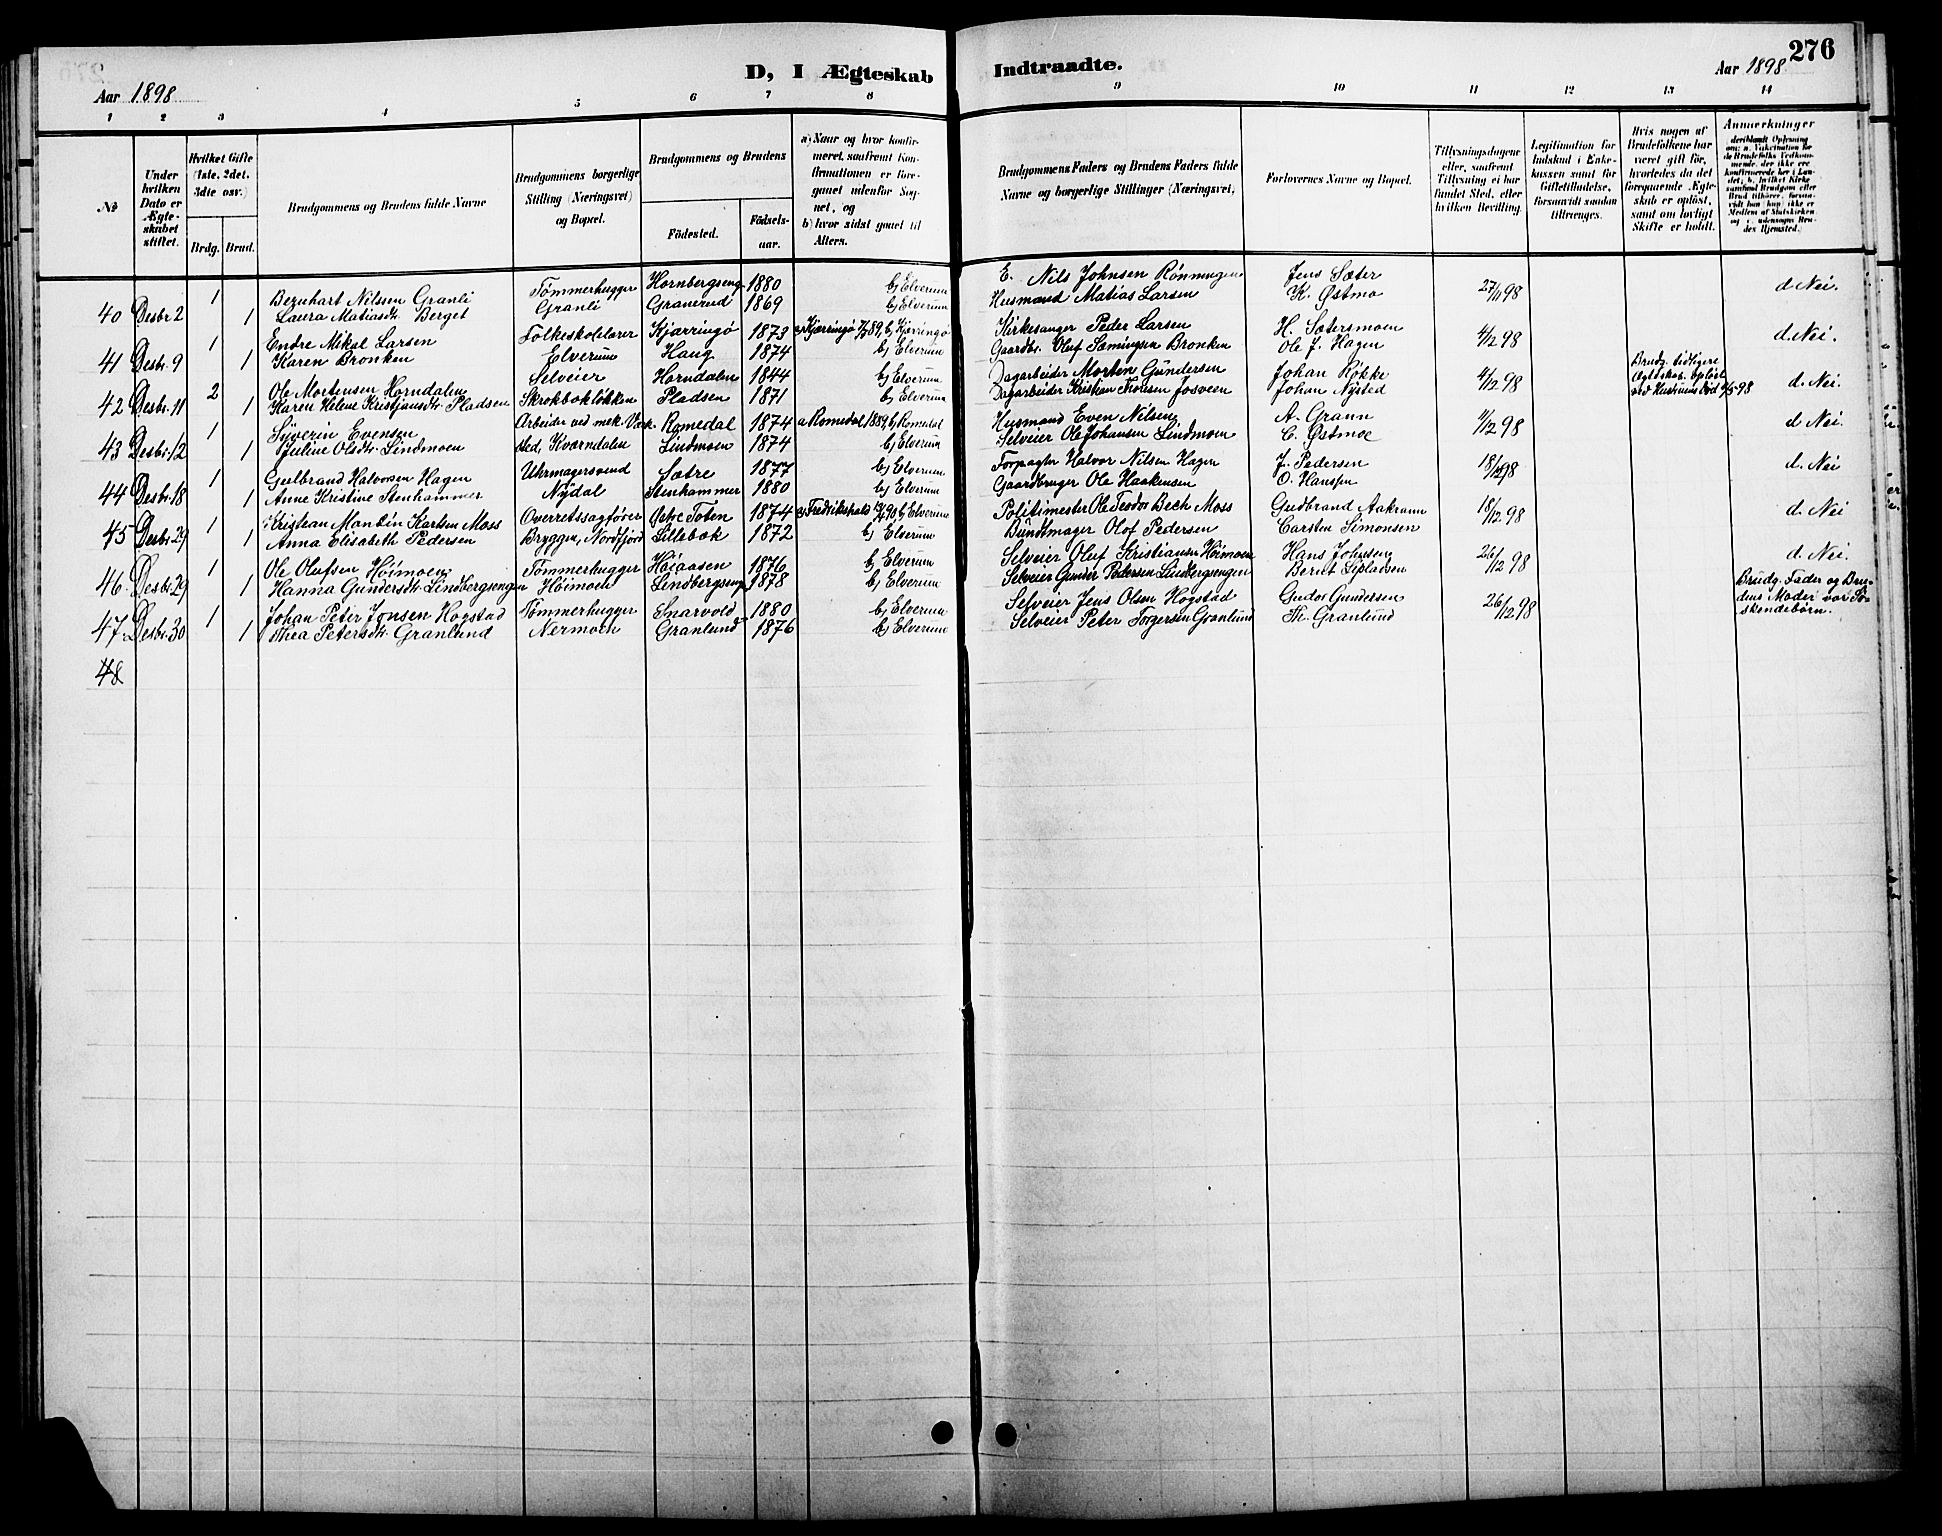 276
D, I Ægteskab Indtraadte.
Aar 1898
Aar 1898
1 2 3 4 5 6 7 8 9 10 11 12 13 14
№
Under hvilken Dato er Ægte-skabet stiftet.
Hvilket Gifte (1ste, 2det, 3dte osv.)
Brdg. Brud.
Brudgommens og Brudens fulde Navne
Brudgommens borgerlige Stilling (Næringsvei) og Bopæl.
Brudgommens og Brudens
Födested.
Födsels-aar.
a) Naar og hvor konfir-meret, saafremt Kon-firmationen er fore-gaaet udenfor Sog-net, og
b) hvor sidst gaaet til Alters.
Brudgommens Faders og Brudens Faders fulde Navne og borgerlige Stillinger (Næringsvei)
Forlovernes Navne og Bopæl.
Tillysningsdagene eller, saafremt Tillysning ei har fundet Sted, efter hvilken Bevilling.
Legitimation for Indskud i Enke-kassen samt for Giftetilladelse, forsaavidt saadan tiltrænges.
Hvis nogen af Brudefolkene har været gift før, hvorledes da det foregaaende Ægte-skab er oplöst, samt om lovligt Skifte er holdt.
Anmærkninger
40 Desbr. 2 1 Bernhart Nilsen Granli Tömmerhugger Hornbergseng 1880 b) Elverum E. Nils Johnsen Rönningen Jens Sæter 27/11 98 d. Nei.
1 Laura Matiasdtr. Berget Granli Granerud 1869 b) Elverum Husmand Matias Larsen K. Østmo
41 Desbr. 9 1 Endre Mikal Larsen Folkeskolelærer Kjærringö 1873 a) Kjærringö 89, b) Kjærringö Kirkesanger Peder Larsen H. Sætersmoen 4/12 98 d. Nei.
1 Karen Bronken Elverum Haug 1874 b) Elverum Gaardbr. Oluf Sæmingsen Bronken Ole J. Hagen
42 Desbr. 11 2 Ole Mortensen Horndalen Selveier Horndalen 1844 b) Elverum Dagarbeider Morten Gundersen Johan Røkke 4/12 98 Brudg. tidligere Ægteskab oplöst ved Hustruens Död 98 d. Nei.
1 Karen Helene Kristjansdtr. Pladsen Skrokbækløkken Pladsen 1871 b) Elverum Dagarbeider Kristian Thoresen Johan Nysted
43 Desbr. 12 1 Syverin Evensen Arbeider ved mek. Værk Romedal 1874 a) Romedal, 1889, b) Romedal Husmand Even Nilsen A. Grann 11/12 98 d. Nei.
1 Juline Olsdtr. Lindmoen sted, Kværndalen Lindmoen 1874 b) Elverum Selveier Ole Johansen Lindmoen C. Østmoe
44 Desbr. 18 1 Gulbrand Halvorsen Hagen Uhrmagersvend Sætre 1877 b) Elverum Forpagter Halvor Nilsen Hagen J. Pedersen 18/12 98 d. Nei
1 Anne Kristine Stenhammer Nydal Stenhammer 1880 b) Elverum Gaardbruger Ole Haakensen O. Hanssen
45 Desbr. 29 1 Kristean Mandin Karlsen Moss Overretssagfører Østre Toten 1874 a) Fredrikshald 90 b) Elverum Politimester Ole Teodor Bech Moss Gudbrand Aakrann 18/12 98 d. Nei
1 Anna Elisabeth Pedersen Bryggen, Nordfjord Lillebæk 1872 b) Elverum Bundtmager Olof Pedersen Carsten Simonsen
46 Desbr. 29 1 Ole Olufsen Höimoen Tömmerhugger Höiaasen 1876 b) Elverum Selveier Oluf Kristiansen Höimoen Hans Johnsen 26/12 98 d. Nei.
1 Hanna Gundersdtr. Lindbergsengen Höimoen Lindbergseng 1878 b) Elverum Selveier Gunder Pedersen Lindbergsengen Bernt
47 Desbr. 30 1 Johan Peter Jonsen Hogstad Tømmerhugger Snarvold 1880 b) Elverum Selveier Jens Olsen Hogstad Gudor Gundersen 26/12 98 Brudg. Fader og Bru-dens Moder var Sö-skendebörn.
1 Thea Petersdtr. Granlund Nermoen Granlund 1876 b) Elverum Selveier Peter Torgersen Granlund Th. Granlund
48